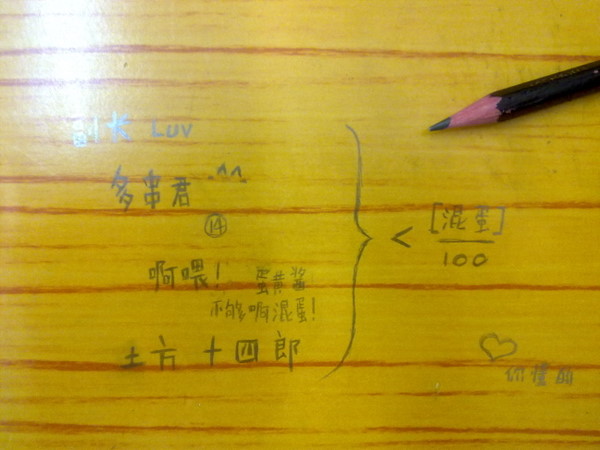 副长 Luv
多串君 ^^
⑭
啊喂！
蛋黄酱
不够啊混蛋！
土方十四郎
} < [混蛋]
100
♡
你懂的